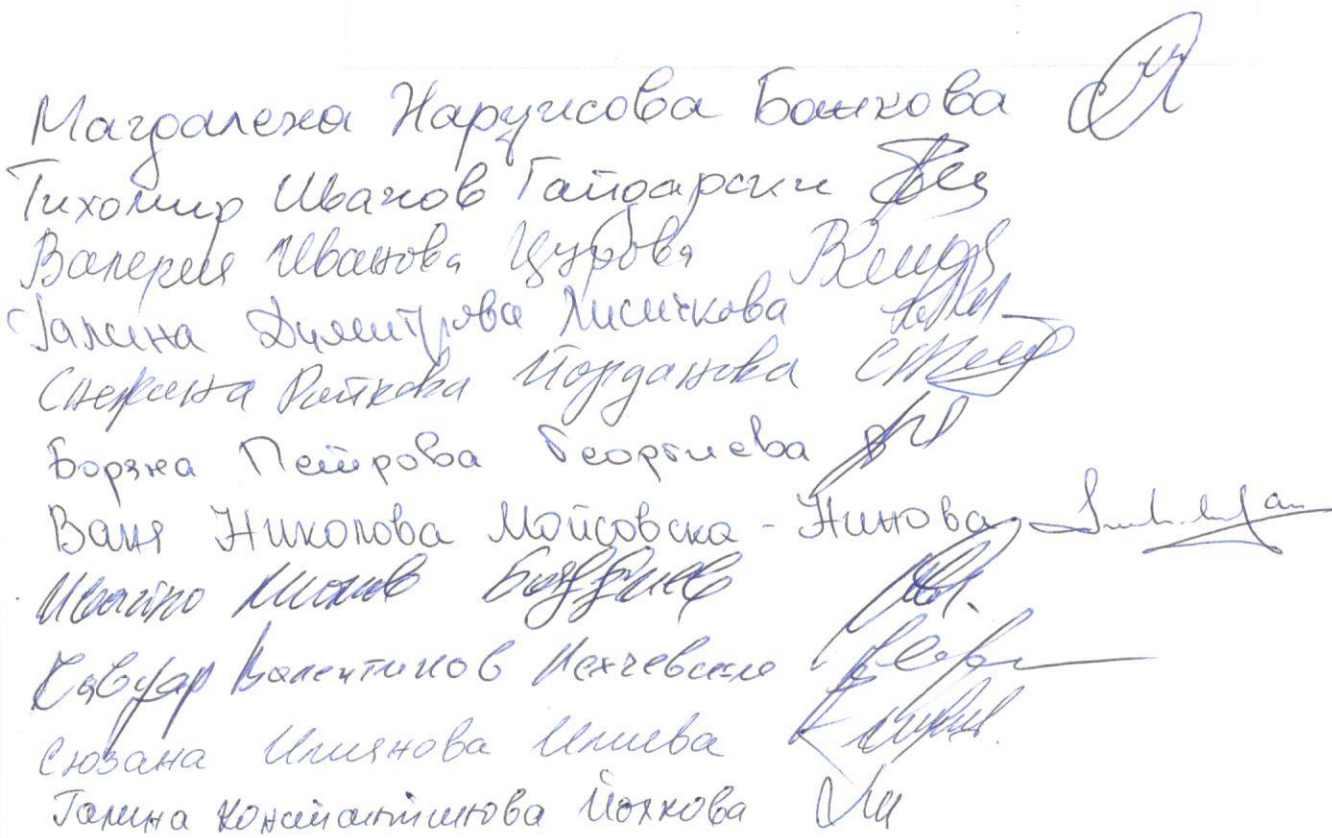 Магдалена Нарцисова Банкова
Тихомир Иванов Гайдарски
Валерия Иванова Цурова
Галина Димитрова Лисичкова
Снежина Райкова Йорданова
Боряна Петрова Георгиева
Ваня Николова Мойсовска - Нинова
Ивайло
Валентинов
Сюзана Илиянова Илиева
Галина Константинова Йолкова